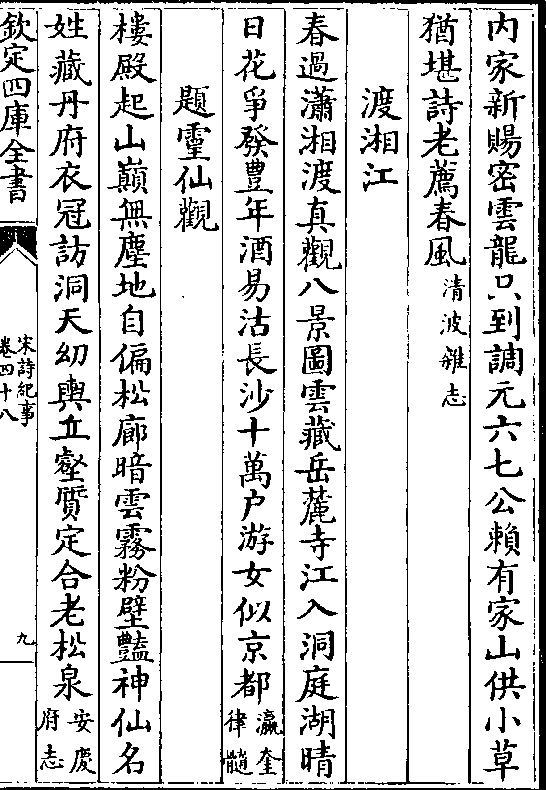 内家新賜密雲龍只到調元六七公賴有家山供小草
猶堪詩老薦春風清波雜志
渡湘江
春過瀟湘渡真觀八景圖雲藏岳麓寺江入洞庭湖晴
日花爭發豐年酒易沽長沙十萬户游女似京都瀛奎律髓
題靈仙觀
樓殿起山巔無塵地自偏松廊暗雲霧粉壁豔神仙名
姓藏丹府衣冠訪洞天幼輿丘壑質定合老松泉安慶府志
欽定四庫全書
宋詩紀事
卷四十八
九